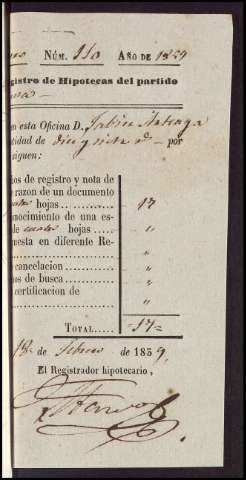 Núm. 110 Año de 1859
egistro de Hipotecas del partido
en esta Oficina D. Arteaga
tidad de diez y siete r.s — por
siguen:
hos de registro y nota de
razon de un documento
hojas........... 17
onocimiento de una es-
de hojas..... "
uesta en diferente Re-
........... "
cancelacion...... "
os de busca....... "
certificacion de
........... "
Total..... 17=
18 de febrero de 1859.
El Registrador hipotecario,